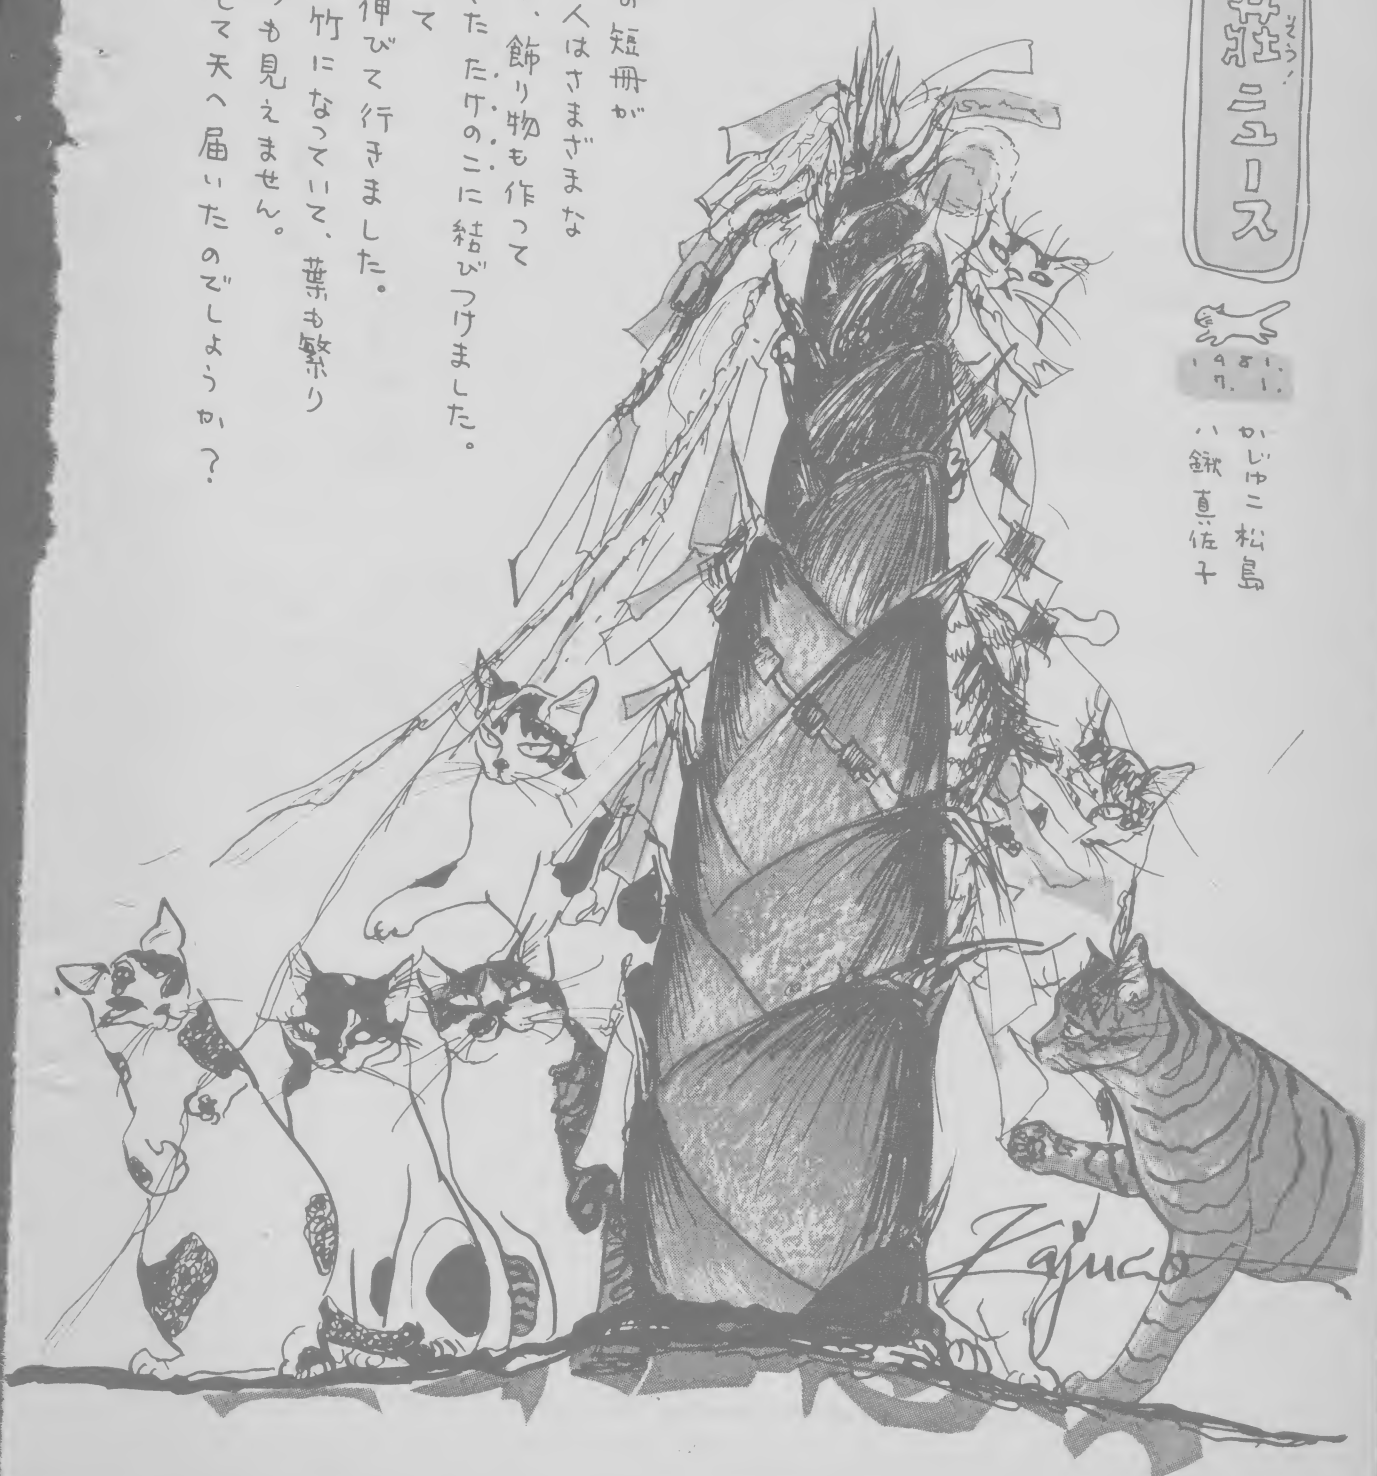 荘ニュース
そう!
1981.
7. 1.
かじゅこ 松島
八鍬 真佐子
の短冊が
人はさまざまな
、飾り物も作って
た たけのこに結びつけました。
て
伸びて行きました。
竹になっていて、葉も繁り
も見えません。
して天へ届いたのでしょうか?
Kajuco